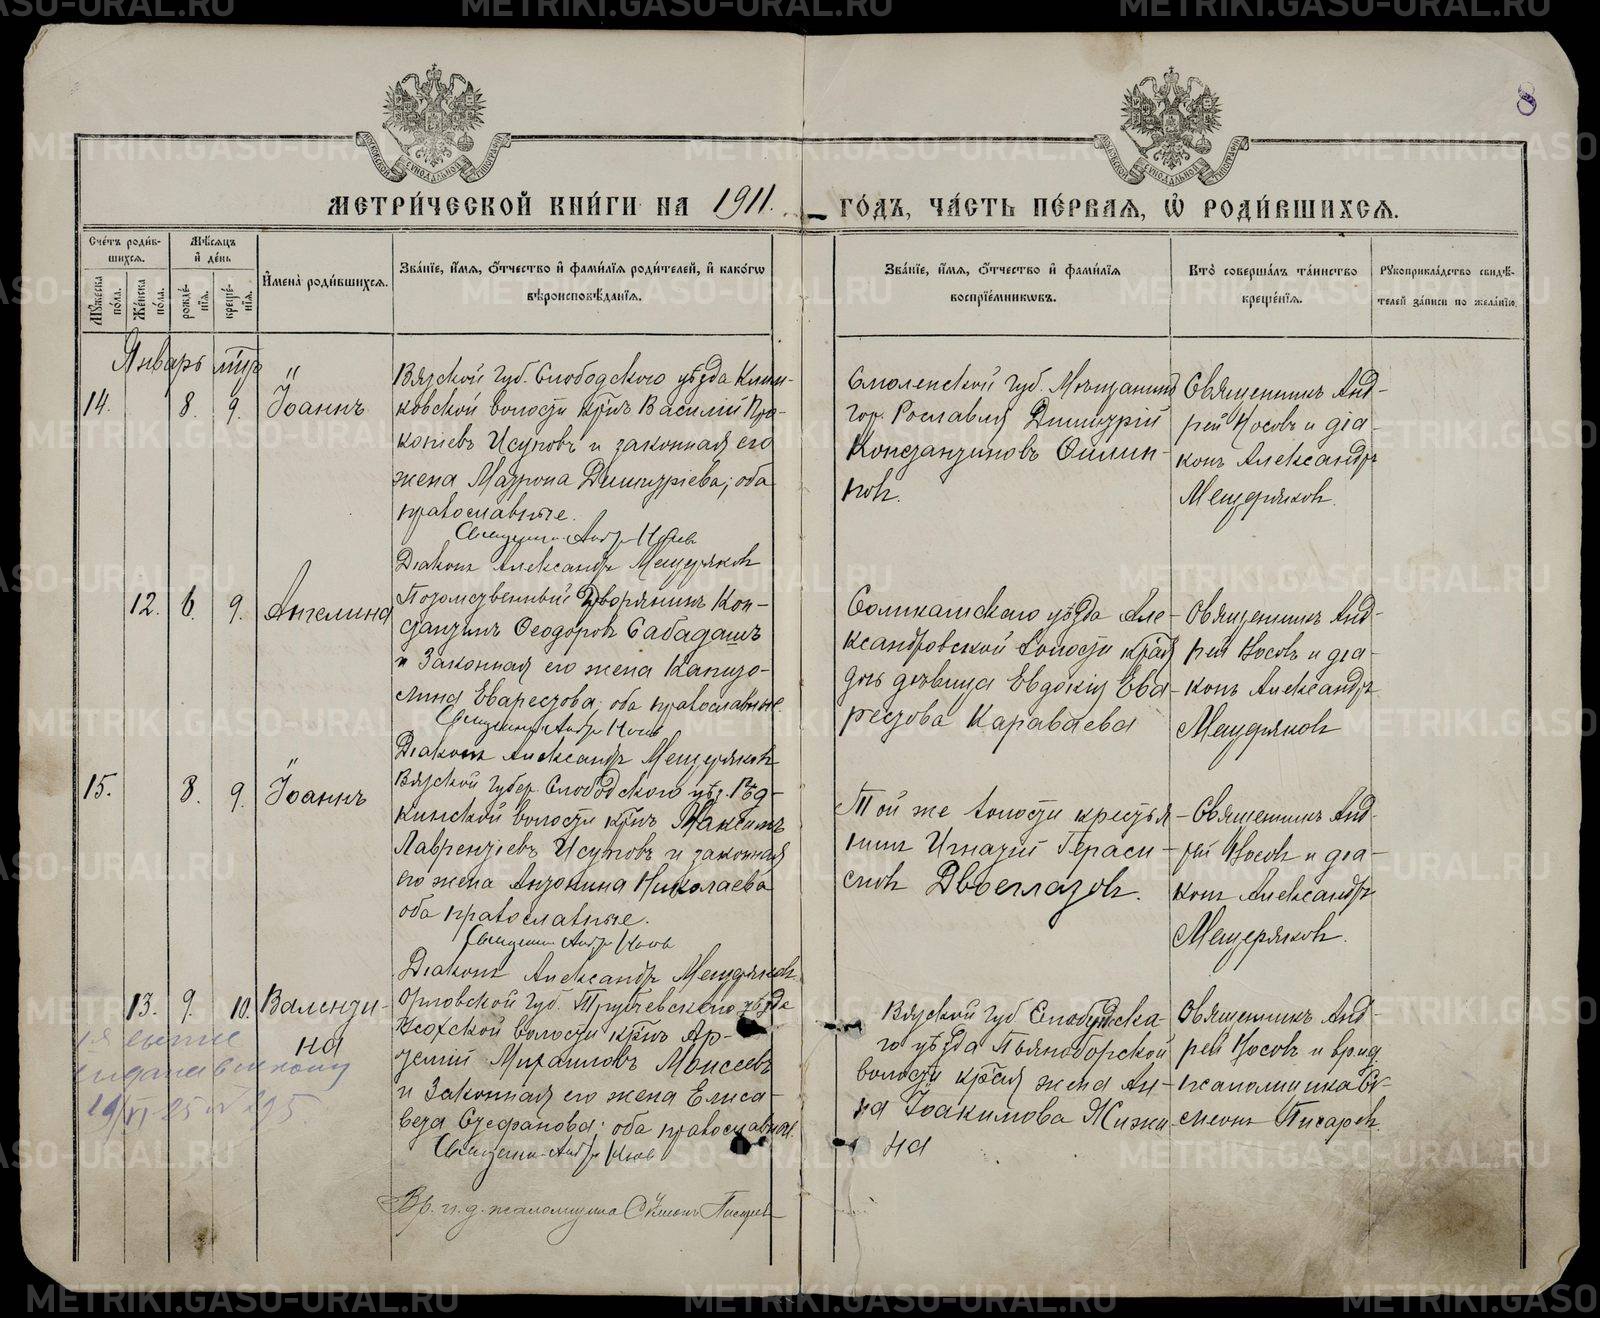 8
МЕТРИ́ЧЕСКОЙ КНИ́ГИ НА 1911.
ГО́ДЪ, ЧА́СТЬ ПЕ́РВАЯ, Ѡ҆ РОДИ́ВШИХСЯ.
Счётъ роди́в-
шихся.
Мѣ́сяцъ
и҆ де́нь
И҆мена̀ роди́вшихся.
Зва́нїе, и҆́мя, ѻ҆́тчество и҆ фами́лїя роди́телей, и҆ како́гѡ
вѣроисповѣ́данїя.
Зва́нїе, и҆́мя, ѻ҆́тчество и҆ фами́лїя
воспрїе́мникѡвъ.
Кто̀ соверша́лъ та́инство
креще́нїя.
Рукоприкла́дство свидѣ́-
телей за́писи по жела́нїю.
Му́жеска
по́ла.
Же́нска
по́ла.
рожде́-
нїя.
креще́-
нїя.
Январь
14.
8.
9.
Іоаннъ
Вятской губ. Слободского уѣзда Клим-
ковской волости крнъ Василій Про-
копіевъ Исуповъ и законная его
жена Матрона Димитріева; оба
православные.
Священн. Андр. Носовъ
Діаконъ Александръ Мещеряковъ
Смоленской губ. Мѣщанинъ
гор. Рославля Димитрій
Константиновъ
Священникъ Анд-
рей Носовъ и діа-
конъ Александръ
Мещеряковъ.
12.
6.
9.
Ангелина
Потомственный Дворянинъ Кон-
стантинъ Ѳеодоровъ Сабадашъ
и Законная его жена Капито-
лина Еварестова; оба православные.
Священн. Андр. Носовъ
Діаконъ Александръ Мещеряковъ
Соликамскаго уѣзда Але-
ксандровской волости края
дочь дѣвица Евдокія Ева-
рестова Караваева
Священникъ Анд-
рей Носовъ и діа-
конъ Александръ
Мещеряковъ
15.
8.
9.
Іоаннъ
Вятской губер. Слободского уѣз.
волости крнъ Максимъ
Лаврентіевъ Исуповъ и законная
его жена Антонина Николаева
оба православные.
Священн. Андр. Носовъ
Діаконъ Александръ Мещеряковъ
Той же волости крестья-
нинъ Игнатій Гераси-
мовъ Двоеглазовъ.
Священникъ Анд-
рей Носовъ и діа-
конъ Александръ
Мещеряковъ.
13.
9.
10.
Валенти-
на
Орловской губ. Трубчевскаго уѣзда
волости крнъ Ар-
темій Михаиловъ Моисеевъ
и Законная его жена Елиса-
вета Стефанова; оба православные.
Священн. Андр. Носовъ
Вр. и. д. псаломщика Сѵмеонъ Писаревъ
Вятской губ Слободска-
го уѣзда Пьяноборской
волости края жена Ан-
на Іоакимова Жижи-
на
Священникъ Анд-
рей Носовъ и врид.
псаломщика Сѵ-
меонъ Писаревъ.